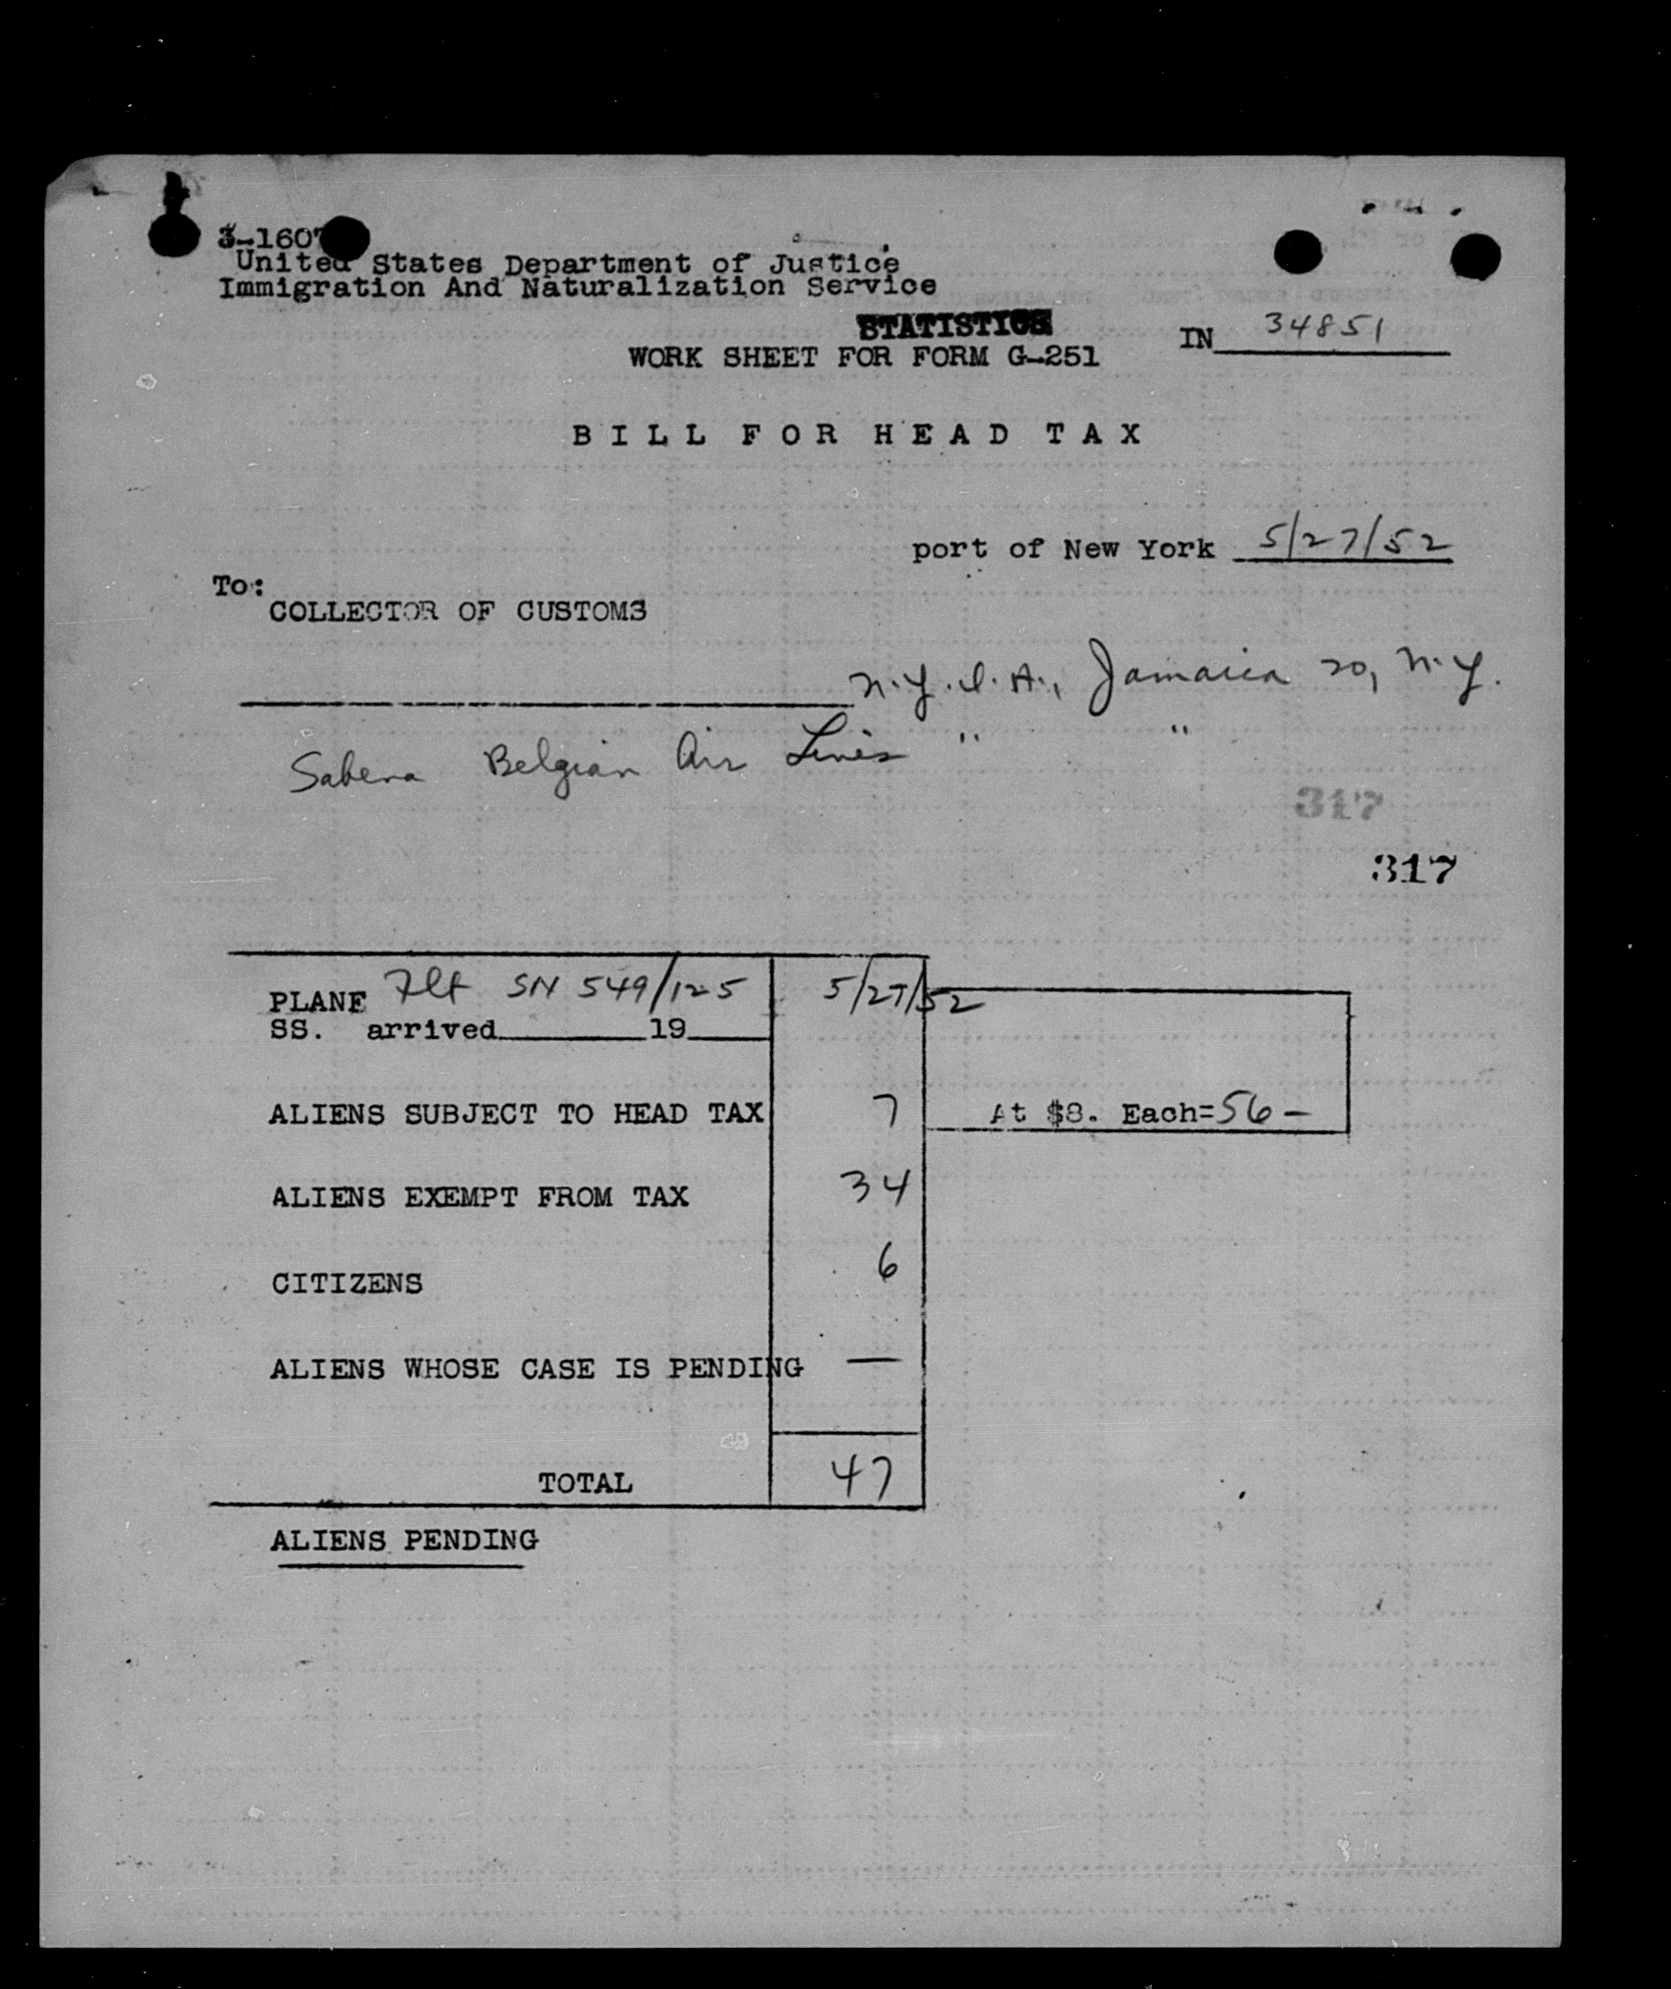 3-1607
United States Department of Justice
Immigration And Naturalization Service
STATISTICS
IN 34851
WORK SHEET FOR FORM G-251
BILL FOR HEAD TAX
port of New York 5/27/52
To:
COLLECTOR OF CUSTOMS
N.Y.I.A., Jamaica 20, N.Y.
Sabena Belgian Air Lines " "
317
317
PLANE Flt SN 549/125 5/27/52
SS. arrived 19
ALIENS SUBJECT TO HEAD TAX 7 At $8. Each=56 —
ALIENS EXEMPT FROM TAX 34
CITIZENS 6
ALIENS WHOSE CASE IS PENDING —
TOTAL 47
ALIENS PENDING